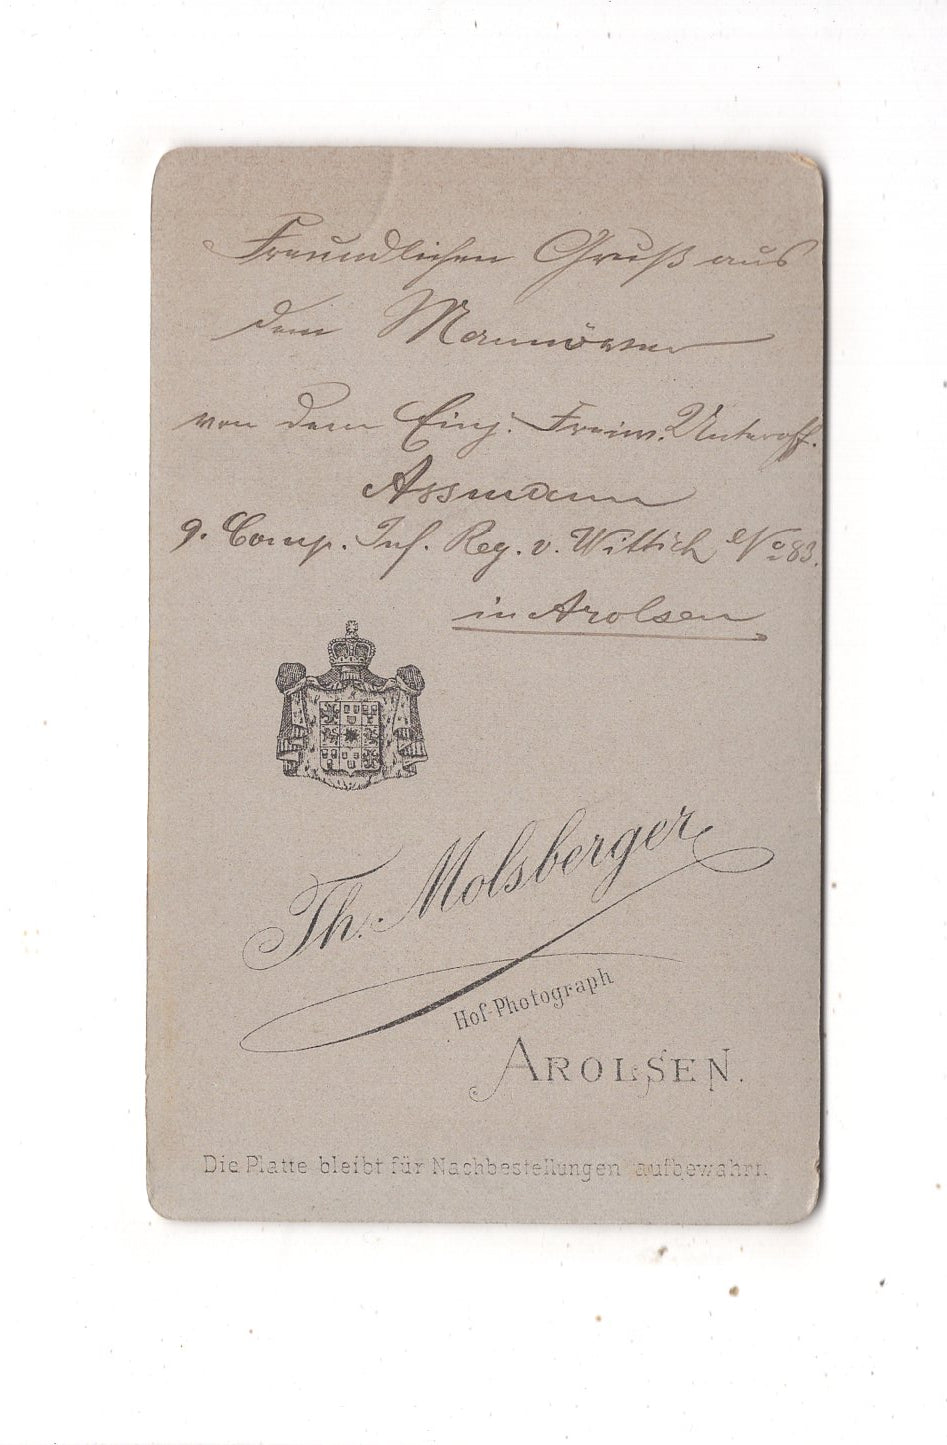 Freundlichen Gruß aus
dem Mannöver
von dem Einj. Freiw. Unteroff.
Assmann
9. Comp. Inf. Reg. v. Wittich No 83.
in Arolsen
Th. Molsberger
Hof-Photograph
AROLSEN.
Die Platte bleibt für Nachbestellungen aufbewahrt.